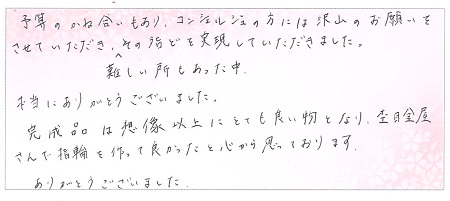 予算のかね合いもあり、コンシェルジュの方には沢山のお願いを
させていただき、その殆どを実現していただきました。
難しい所もあった中、
本当にありがとうございました。
完成品は想像以上にとても良い物となり、杢目金屋
さんで指輪を作って良かったと心から思っております。
ありがとうございました。